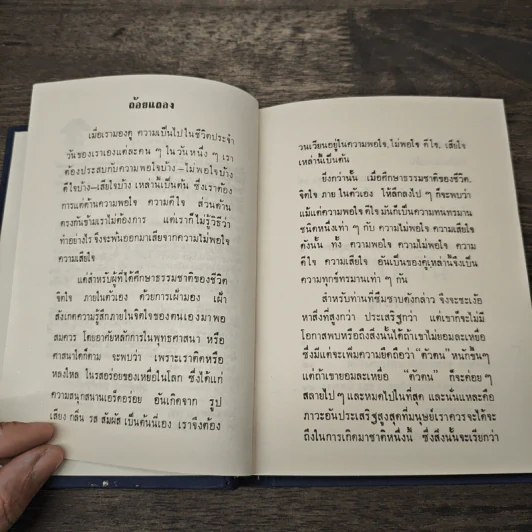 ถ้อยแถลง
เมื่อเรามองดู ความเป็นไปในชีวิตประจำ
วันของเราเองแต่ละคน ๆ ในวันหนึ่ง ๆ เรา
ต้องประสบกับความพอใจบ้าง–ไม่พอใจบ้าง
ดีใจบ้าง–เสียใจบ้าง เหล่านี้เป็นต้น ซึ่งเราต้อง
การแต่ด้านความพอใจ ความดีใจ ส่วนด้าน
ตรงกันข้ามเราไม่ต้องการ แต่เราก็ไม่รู้วิธีว่า
ทำอย่างไร จึงจะพ้นออกมาเสียจากความไม่พอใจ
ความเสียใจ
แต่สำหรับผู้ที่ได้ศึกษาธรรมชาติของชีวิต
จิตใจ ภายในตัวเอง ด้วยการเฝ้ามอง เฝ้า
สังเกตความรู้สึกภายในจิตใจของตนเองมาพอ
สมควร โดยอาศัยหลักการในพุทธศาสนา หรือ
ศาสนาใดก็ตาม จะพบว่า เพราะเราติดหรือ
หลงใหล ในรสอร่อยของเหยื่อในโลก ซึ่งได้แก่
ความสนุกสนานเอร็ดอร่อย อันเกิดจาก รูป
เสียง กลิ่น รส สัมผัส เป็นต้นนี่เอง เราจึงต้อง
วนเวียนอยู่ในความพอใจ, ไม่พอใจ ดีใจ, เสียใจ
เหล่านี้เป็นต้น
ยิ่งกว่านั้น เมื่อศึกษาธรรมชาติของชีวิต,
จิตใจ ภาย ในตัวเอง ให้ลึกลงไป ๆ ก็จะพบว่า
แม้แต่ความพอใจ ดีใจ มันก็เป็นความทนทรมาน
ชนิดหนึ่งเท่า ๆ กับ ความไม่พอใจ ความเสียใจ
ดังนั้น ทั้ง ความพอใจ ความไม่พอใจ ความ
ดีใจ ความเสียใจ อันเป็นของคู่เหล่านี้จึงเป็น
ความทุกข์ทรมานเท่า ๆ กัน
สำหรับท่านที่ซึมซาบดังกล่าว จึงจะชะเง้อ
หาสิ่งที่สูงกว่า ประเสริฐกว่า แต่เขาก็จะไม่มี
โอกาสพบหรือถึงสิ่งนั้นได้ถ้าเขาไม่ยอมละเหยื่อ
ซึ่งมีแต่จะเพิ่มความยึดถือว่า “ตัวตน” หนักขึ้นๆ
แต่ถ้าเขายอมละเหยื่อ “ตัวตน” ก็จะค่อยๆ
สลายไป ๆ และหมดไปในที่สุด และนั่นแหละคือ
ภาวะอันประเสริฐสูงสุดที่มนุษย์เราควรจะได้จะ
ถึงในการเกิดมาชาติหนึ่งนี้ ซึ่งสิ่งนั้นจะเรียกว่า